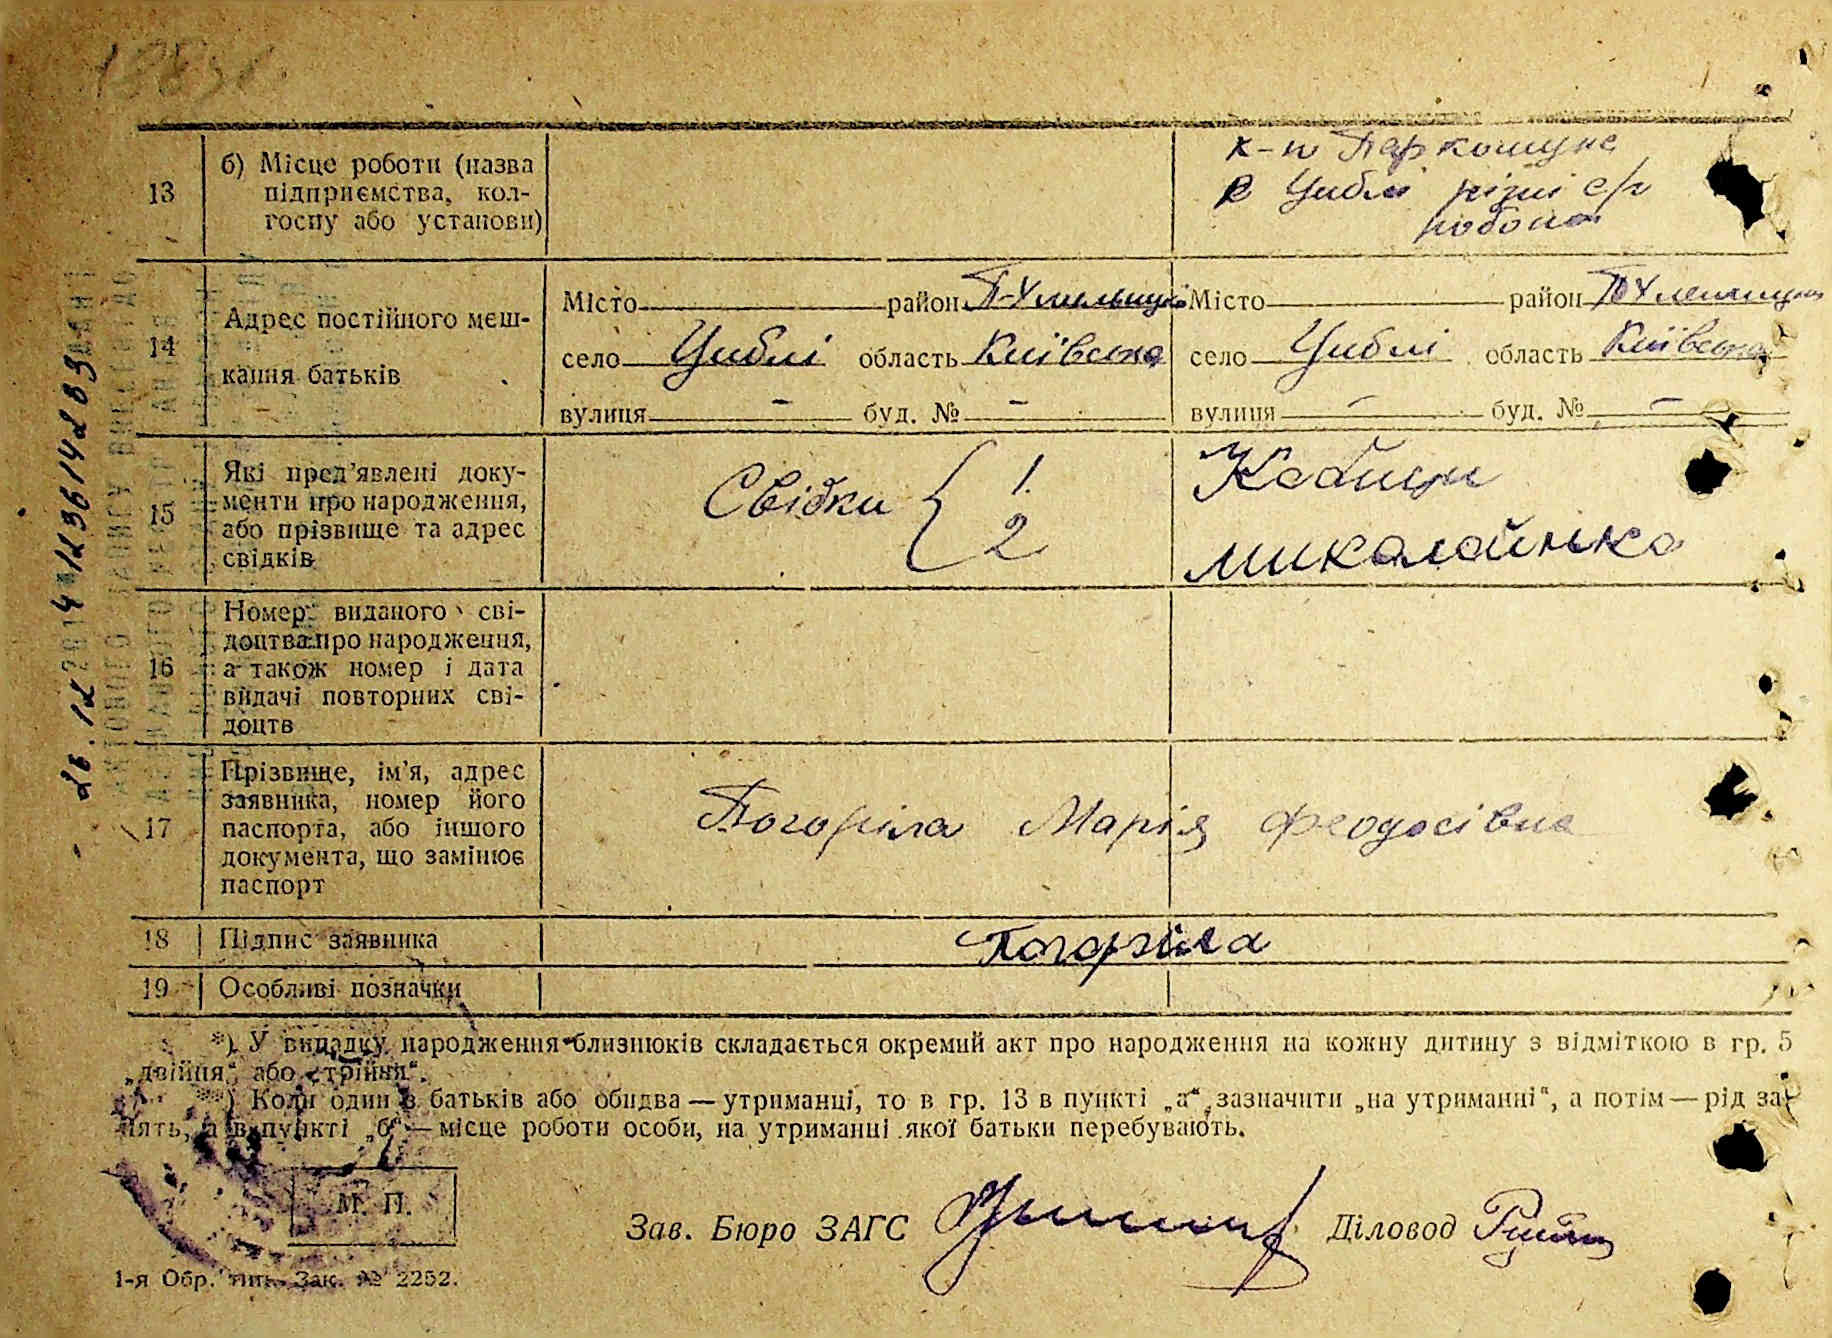 13
б) Місце роботи (назва
підприємства, кол-
госпу або установи)
к-п Паркомуна
с Циблі різні с/г
робота
14
Адрес постійного меш-
кання батьків
Місто район П-Хмельниц
село Циблі область Київська
вулиця - буд. № -
Місто район П-Хмельниц
село Циблі область Київська
вулиця - буд. № -
15
Які пред'явлені доку-
менти про народження,
або прізвище та адрес
свідків
Свідки { 1.
2
Миколаєнко
16
Номер виданого сві-
доцтва про народження,
а також номер і дата
видачі повторних сві-
доцтв
17
Прізвище, ім'я, адрес
заявника, номер його
паспорта, або іншого
документа, що замінює
паспорт
Погоріла Марія Феодосівна
18 Підпис заявника
Погоріла
19 Особливі позначки
*) У випадку народження близнюків складається окремий акт про народження на кожну дитину з відміткою в гр. 5
„двійня“ або „трійня“.
**) Коли один з батьків або обидва — утриманці, то в гр. 13 в пункті „а“ зазначити „на утриманні“, а потім — рід за-
нять, а в пункті „б“ — місце роботи особи, на утриманні якої батьки перебувають.
М. П.
Зав. Бюро ЗАГС
Діловод
1-я Обр. тип. Зак. № 2252.